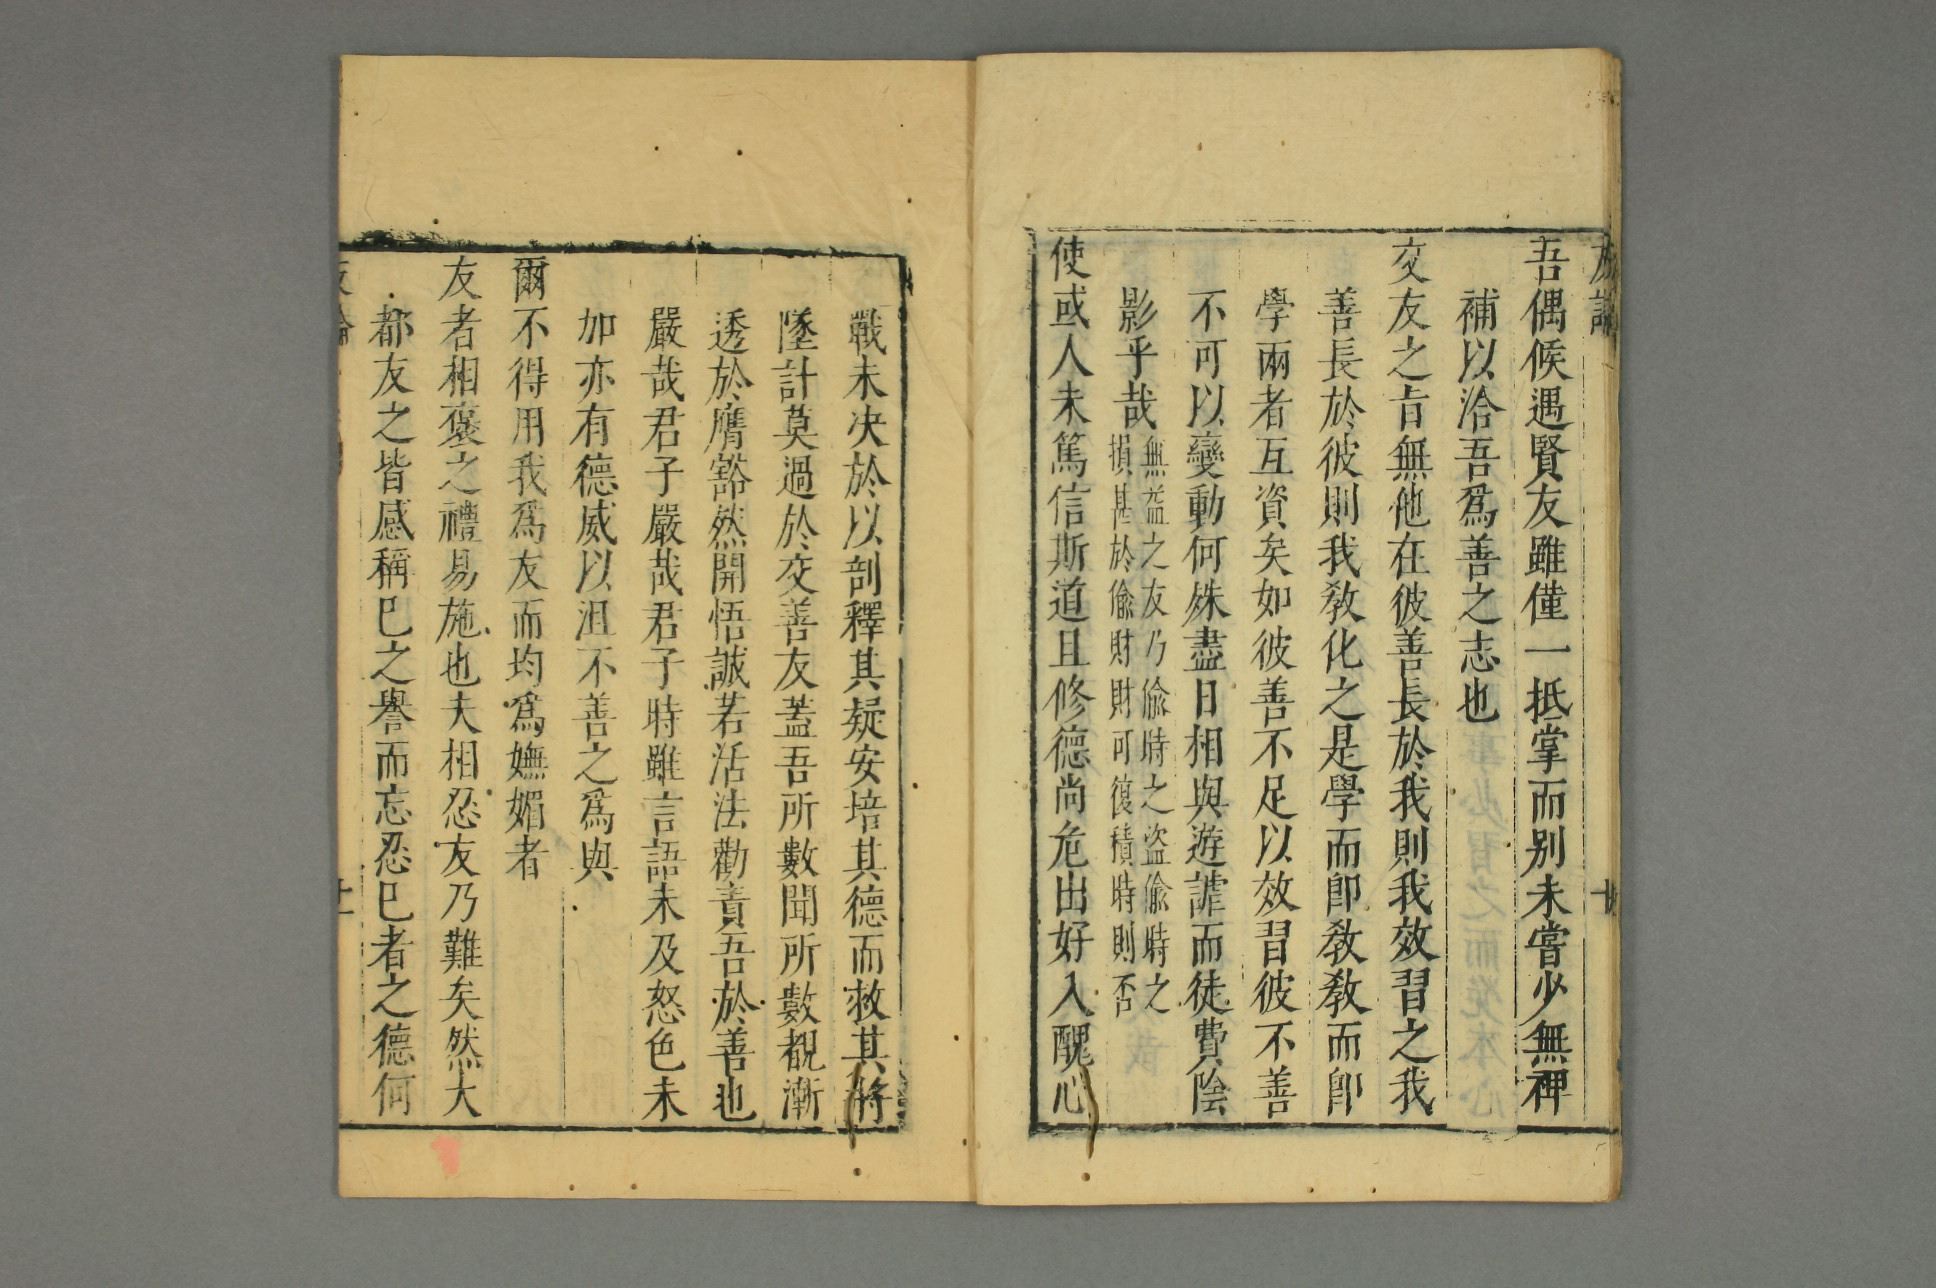 友論
吾偶候遇賢友雖僅一抵掌而別未嘗少無裨
補以洽吾爲善之志也
交友之旨無他在彼善長於我則我效習之我
善長於彼則我教化之是學而卽教教而卽
學兩者互資矣如彼善不足以效習彼不善
不可以變動何殊盡日相與遊謔而徒費陰
影乎哉
無益之友乃偷時之盜偷時之
損甚於偷財財可復積時則否
使或人未篤信斯道且修德尚危出好入醜心
戰未决於以剖釋其疑安培其德而救其將
墜計莫過於交善友蓋吾所數聞所數覩漸
透於膺豁然開悟誠若活法勸責吾於善也
嚴哉君子嚴哉君子時雖言語未及怒色未
加亦有德威以沮不善之爲與
爾不得用我爲友而均爲嫵媚者
友者相褒之禮易施也夫相忍友乃難矣然大
都友之皆感稱已之譽而忘忍已者之德何
友論